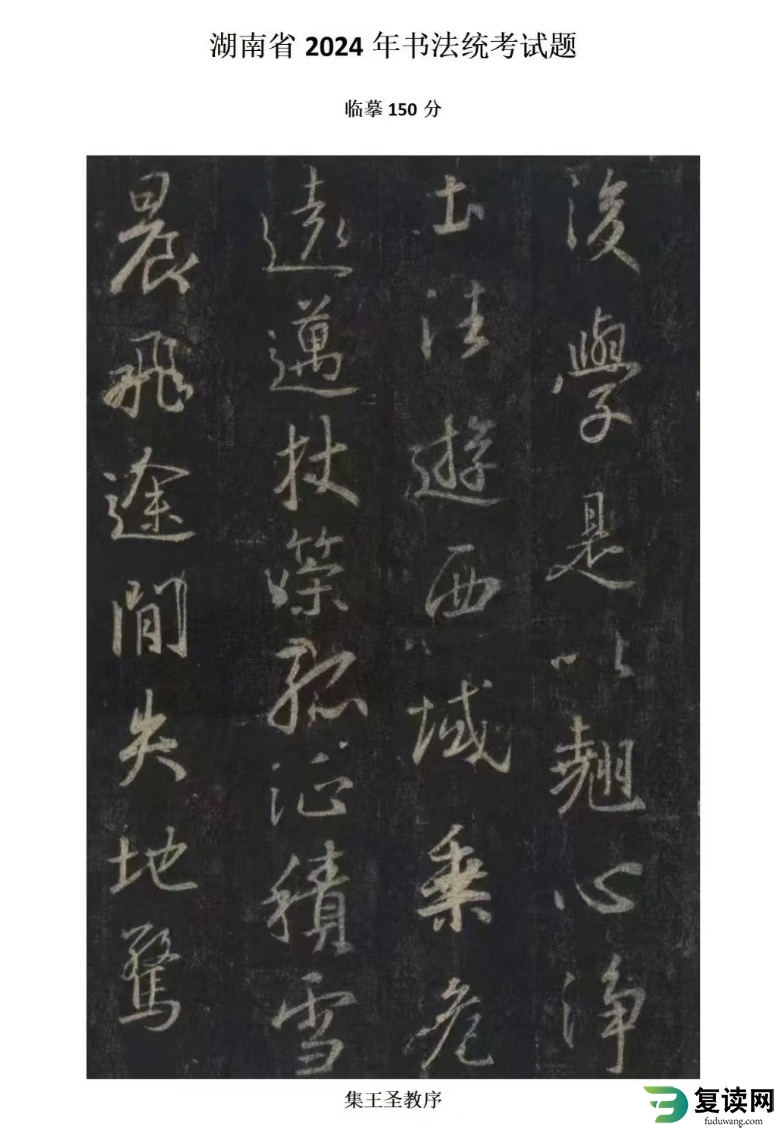 湖南省 2024 年书法统考试题
临摹 150 分
後學是以翹心淨
土往遊西域乗危
遠邁杖策孤征積雪
晨飛途間失地驚
集王圣教序
复读网
fuduwang.com